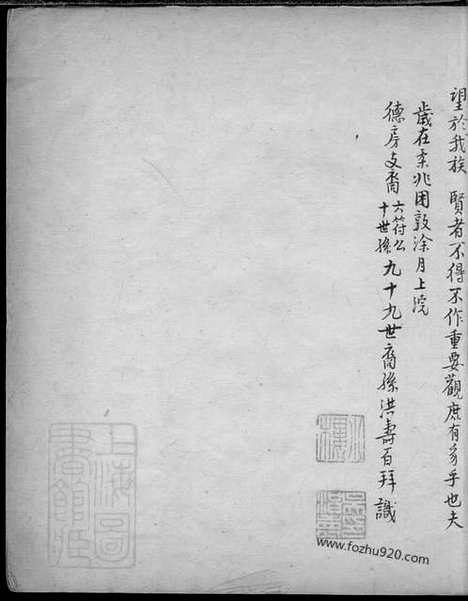 望於我族 賢者不得不作重要觀庶有豸乎也夫
歲在柔兆困敦涂月上浣
德房支裔六符公十世孫九十九世裔孫洪壽百拜識
上海圖書館藏
www.fozhu920.com